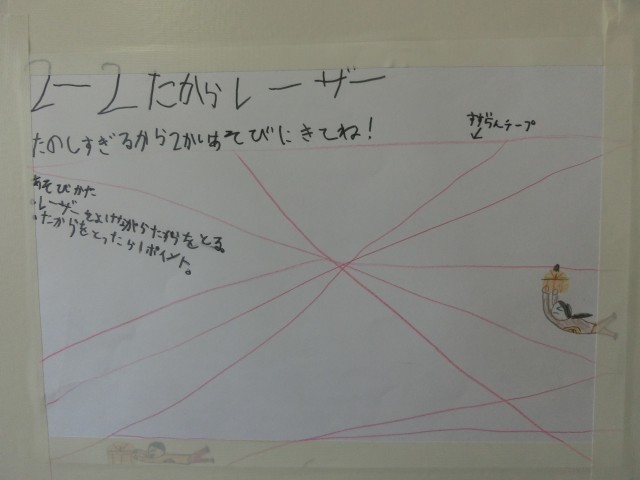 2-2たからレーザー
たのしすぎるから2かいはあそびにきてね!
すずらんテープ
あそびかた
・レーザーをよけながらたからをとる。
・たからをとったら1ポイント。